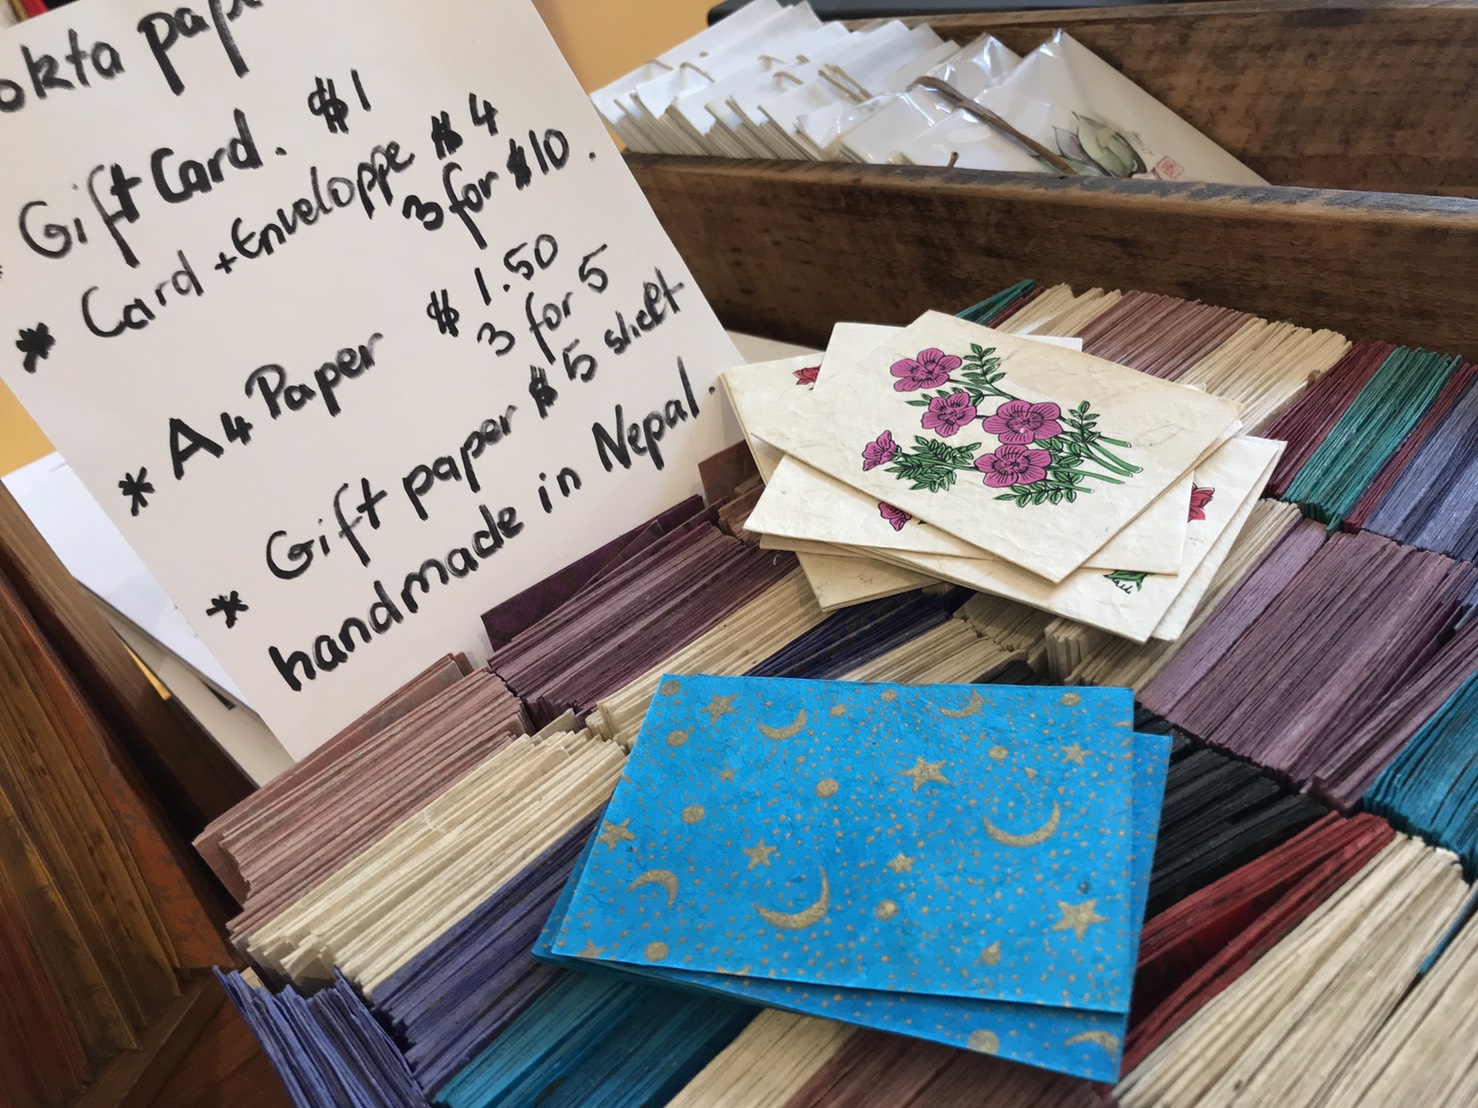 okta pap
Gift Card. $1
* Card + Enveloppe $4
3 for $10.
* A4 Paper $1.50
3 for 5
* Gift paper $5 sheet
handmade in Nepal.